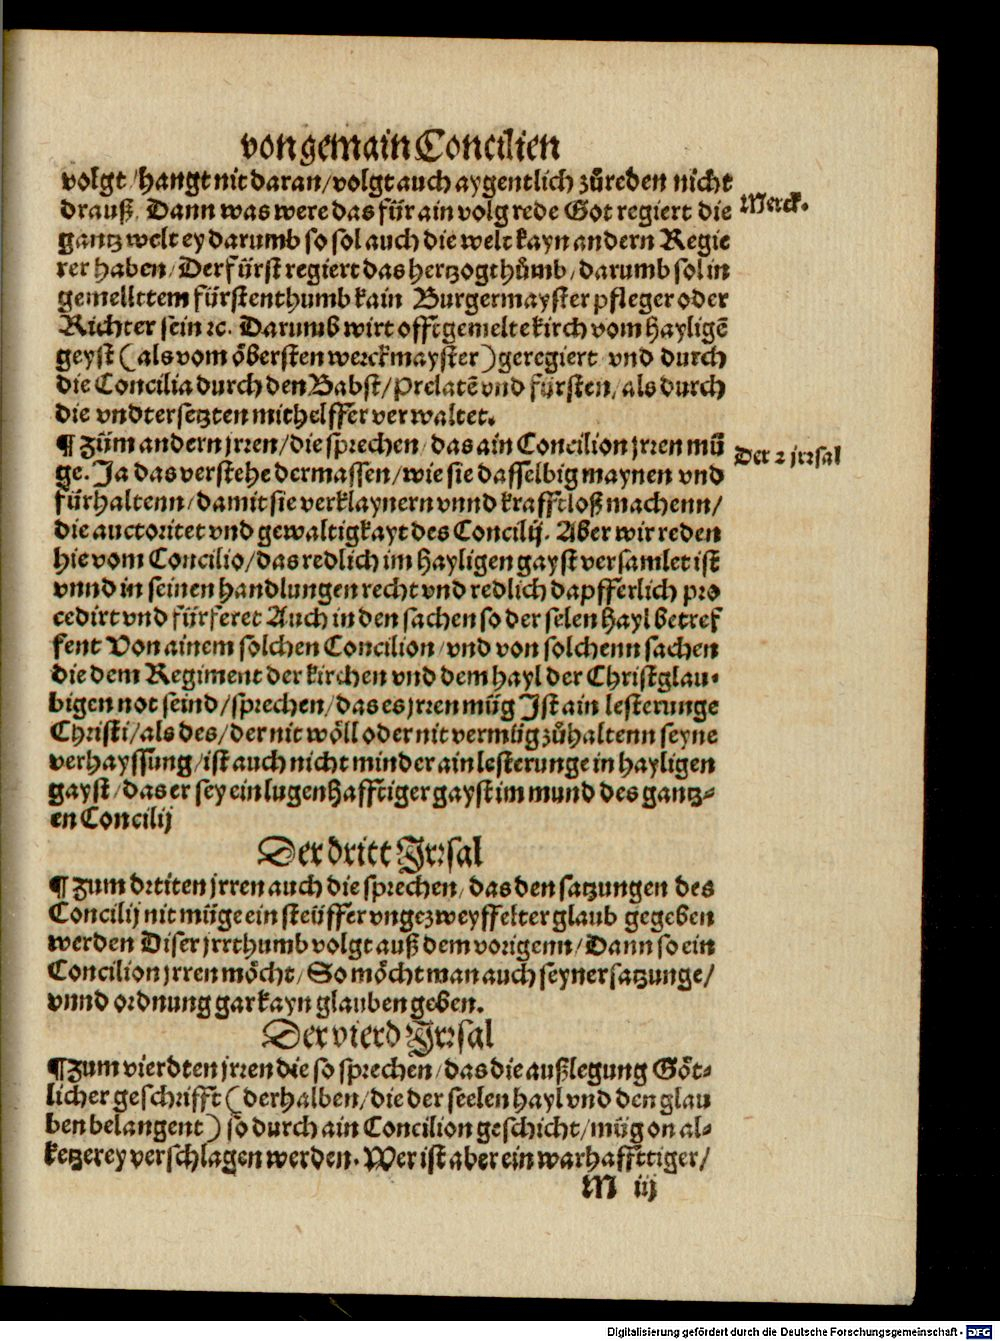 von gemain Concilien
volgt / hangt nit daran / volgt auch aygentlich zůreden nicht
drauß. Dann was were das für ain volg rede Got regiert die
Merck.
gantz welt ey darumb so sol auch die welt kayn andern Regie
rer haben / Der fürst regiert das hertzogthůmb / darumb sol in
gemellttem fürstenthumb kain Burgermayster pfleger oder
Richter sein ꝛc. Darumb wirt offt gemelte kirch vom hayligē
geyst (als vom öbersten werckmayster) geregiert vnd durch
die Concilia durch den Babst / Prelatē vnd fürsten / als durch
die vndtersetzten mithelffer verwaltet.
¶ Zům andern jrren / die sprechen / das ain Concilion jrren mü
Der 2 jrrsal
ge. Ja das verstehe dermassen / wie sie dasselbig maynen vnd
fürhaltenn / damit sie verklaynern vnnd krafftloß machenn /
die auctoritet vnd gewaltigkayt des Concilij. Aber wir reden
hie vom Concilio / das redlich im hayligen gayst versamlet ist
vnnd in seinen handlungen recht vnd redlich dapfferlich pro
cedirt vnd fürferet Auch in den sachen so der selen hayl betref
fent Von ainem solchen Concilion / vnd von solchenn sachen
die dem Regiment der kirchen vnd dem hayl der Christglau-
bigen not seind / sprechen / das es jrren müg Ist ain lesterunge
Christi / als des / der nit wöll oder nit vermüg zůhaltenn seyne
verhayssung / ist auch nicht minder ain lesterunge in hayligen
gayst / das er sey ein lugenhafftiger gayst im mund des gantz-
en Concilij
Der dritt Jrrsal
¶ Zum dritten jrren auch die sprechen / das den satzungen des
Concilij nit müge ein steüffer vngezweyffelter glaub gegeben
werden Diser jrrthumb volgt auß dem vorigenn / Dann so ein
Concilion jrren möcht / So möcht man auch seyner satzunge /
vnnd ordnung gar kayn glauben geben.
Der vierd Jrrsal
¶ Zum vierdten jrren die so sprechen / das die außlegung Göt-
licher geschrifft (derhalben / die der seelen hayl vnd den glau
ben belangent) so durch ain Concilion geschicht / müg on al-
ketzerey verschlagen werden. Wer ist aber ein warhaffttiger /
M iij
Digitalisierung gefördert durch die Deutsche Forschungsgemeinschaft - DFG